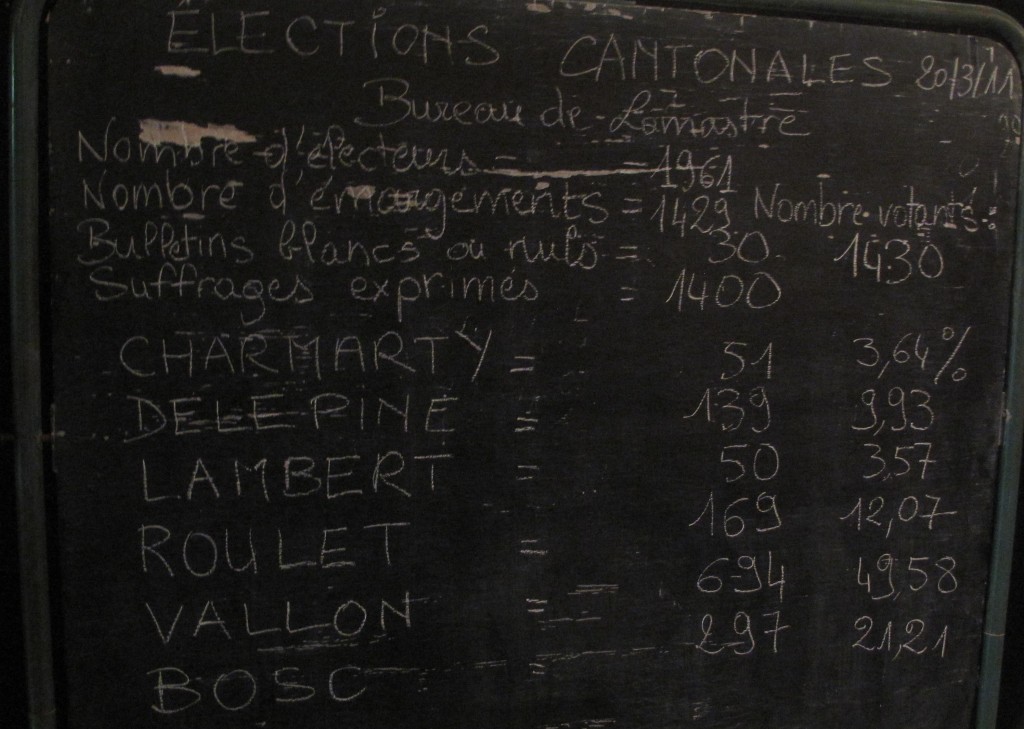 ÉLECTIONS CANTONALES 20/3/11
Bureau de Lamastre
Nombre d'électeurs = 1961
Nombre d'émargements = 1429 Nombre votants :
Bulletins blancs ou nuls = 30 1430
Suffrages exprimés = 1400
CHARMARTY = 51 3,64%
DELEPINE = 139 9,93
LAMBERT = 50 3,57
ROULET = 169 12,07
VALLON = 694 49,58
BOSC = 297 21,21